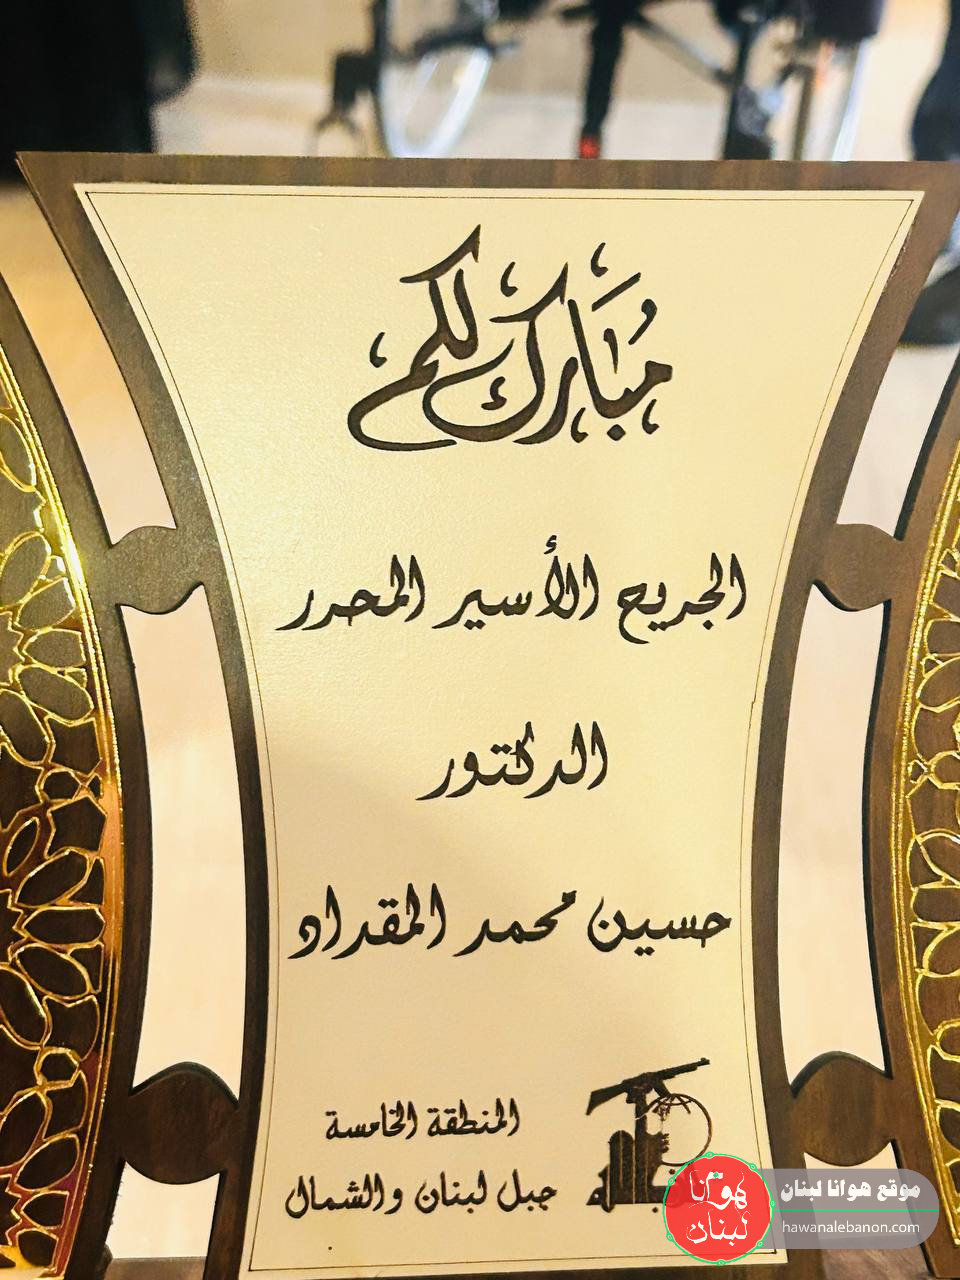 مُبارك لكم
الجريح الأسير المحرر
الدكتور
حسين محمد المقداد
المنطقة الخامسة
جبل لبنان والشمال
هوانا لبنان
موقع هوانا لبنان
hawanalebanon.com